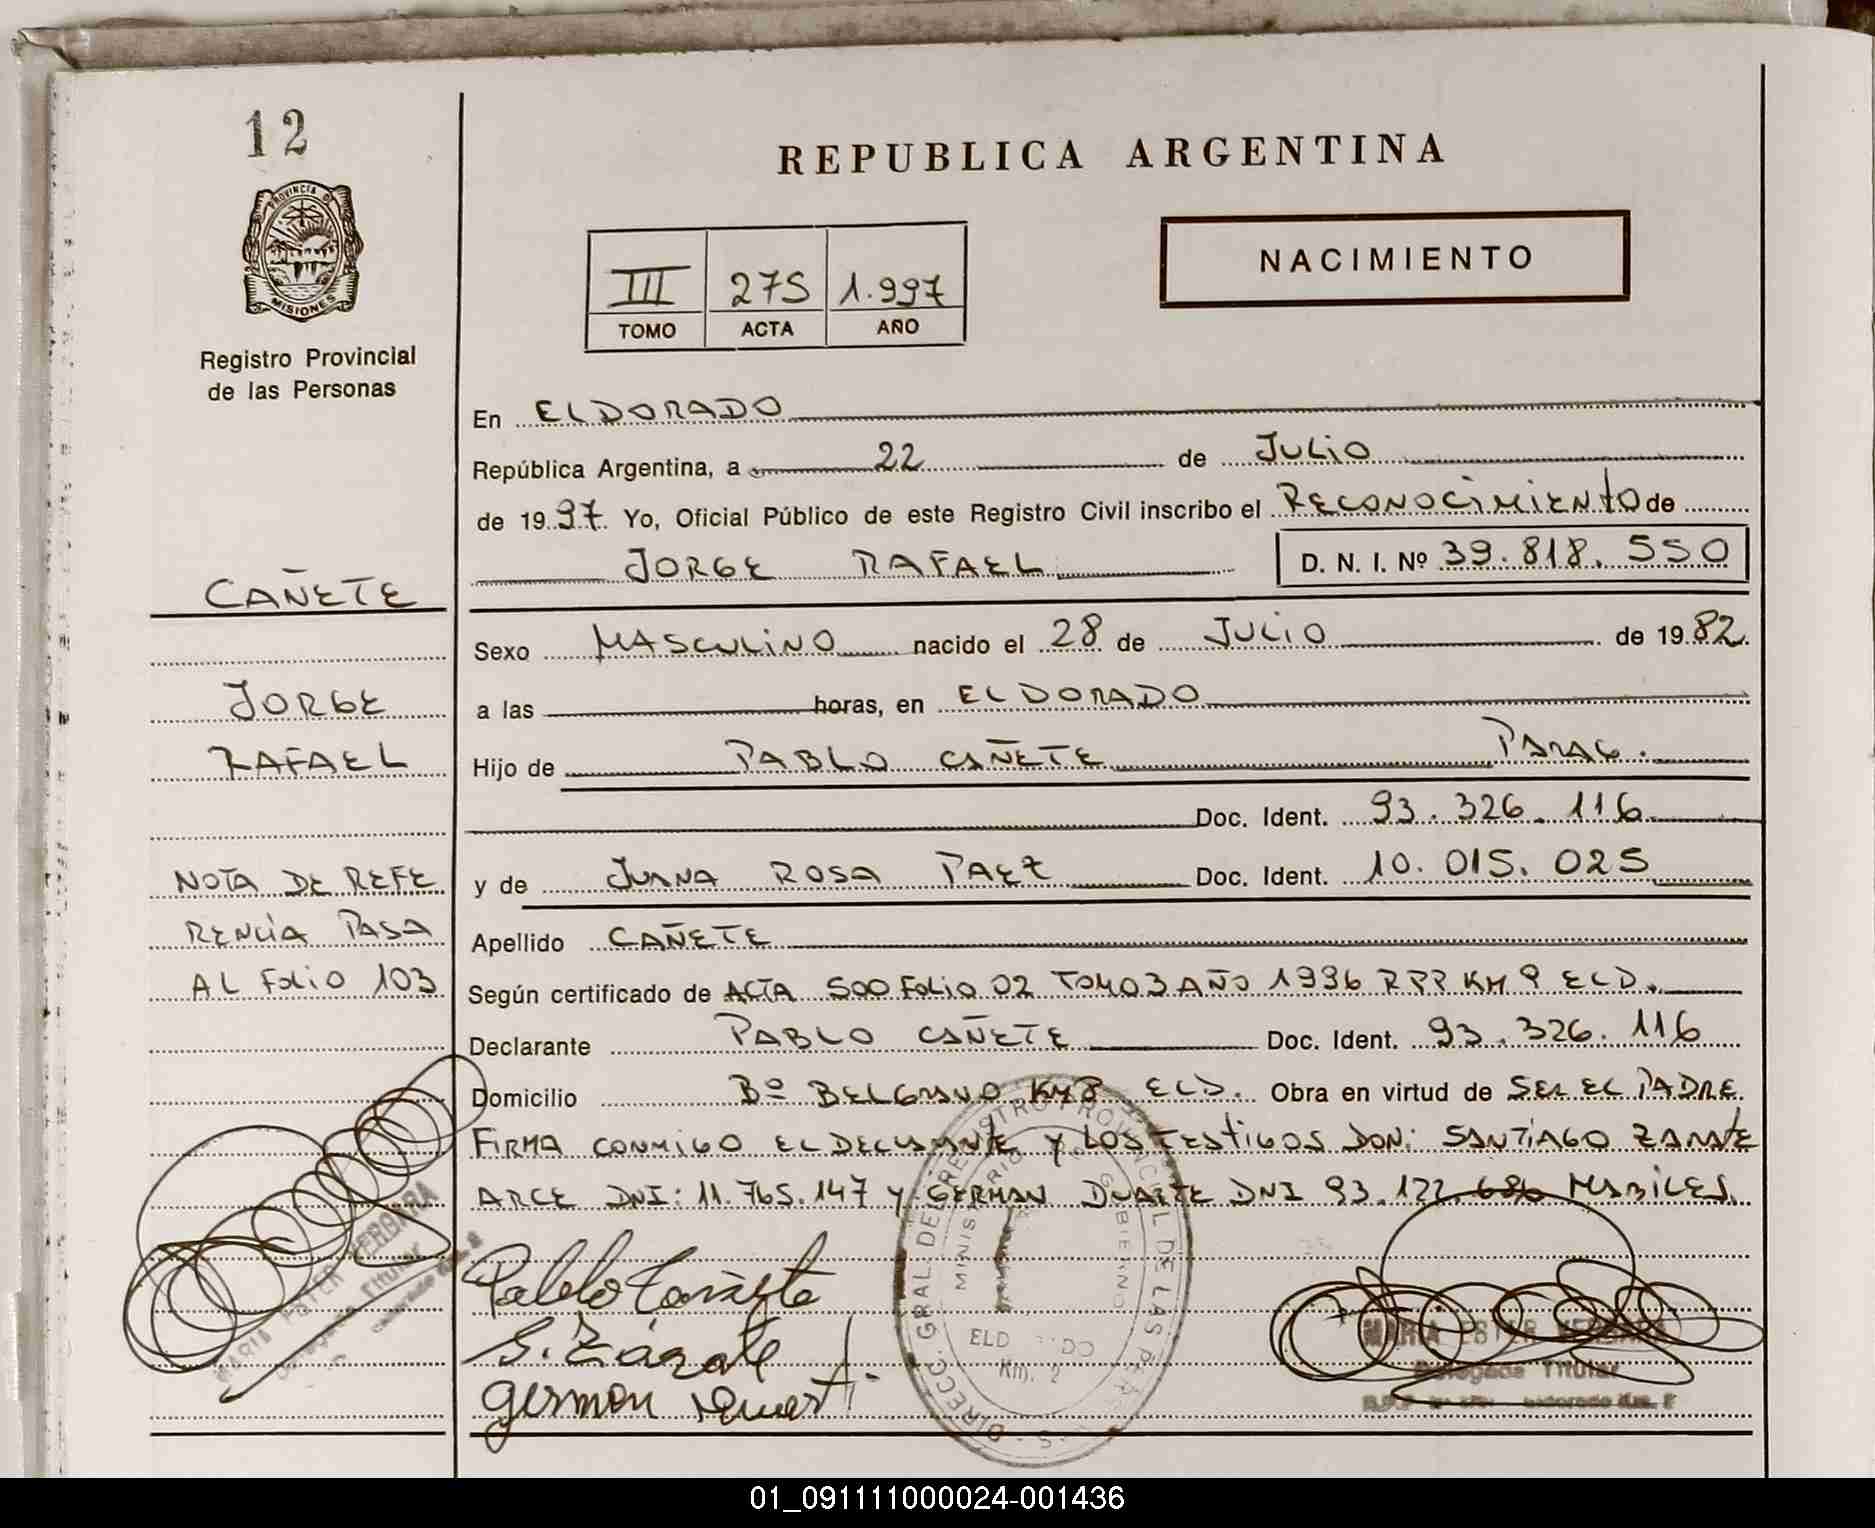 12
PROVINCIA DE
MISIONES
Registro Provincial
de las Personas
REPUBLICA ARGENTINA
III 275 1.997
TOMO ACTA AÑO
NACIMIENTO
En ELDORADO
República Argentina, a 22 de JULIO
de 1997. Yo, Oficial Público de este Registro Civil inscribo el RECONOCIMIENTO de
JORGE RAFAEL D. N. I. Nº 39.818.550
CAÑETE
Sexo MASCULINO nacido el 28 de JULIO de 1982.
JORGE
a las horas, en ELDORADO
RAFAEL
Hijo de PABLO CAÑETE PARAG.
Doc. Ident. 93.326.116
NOTA DE REFE
y de JUANA ROSA PAEZ Doc. Ident. 10.015.025
RENCIA PASA
Apellido CAÑETE
AL FOLIO 103
Según certificado de ACTA 500 FOLIO 02 TOMO 3 AÑO 1996 RPP KM 9 ELD.
Declarante PABLO CAÑETE Doc. Ident. 93.326.116
Domicilio Bº BELGRANO KM 8 ELD. Obra en virtud de SER EL PADRE.
FIRMA CONMIGO EL DECLARANTE Y LOS TESTIGOS DON: SANTIAGO ZARATE
ARCE DNI: 11.765.147 Y GERMAN DUARTE DNI 93.122.686 HABILES.
Pablo Cañete
S. Zárate
MARIA ESTER VERGARA
Delegada Titular
DIRECC. GRAL. DEL REGISTRO PROVINCIAL DE LAS PER
MINISTERIO DE GOBIERNO
Km. 2
MARIA ESTER VERGARA
Delegada Titular
01_091111000024-001436